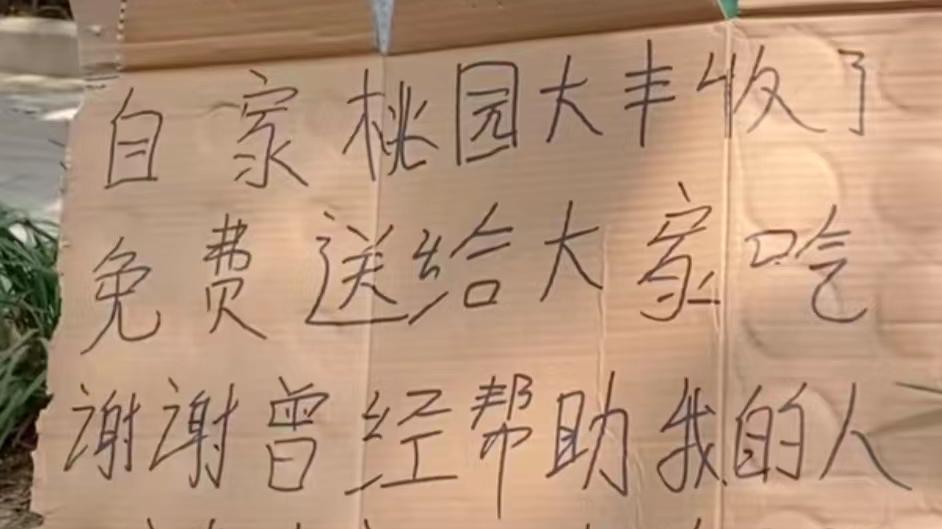 自家桃园大丰收了
免费送给大家吃
谢谢曾经帮助我的人